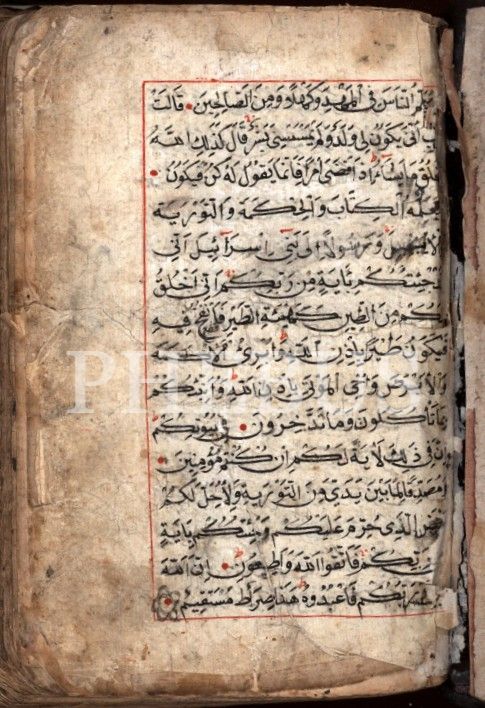 يكلم الناس في المهد وكهلا ومن الصالحين قالت
رب انى يكون لي ولد ولم يمسسني بشر قال كذلك الله
يخلق ما يشاء اذا قضى امرا فانما يقول له كن فيكون
ويعلمه الكتاب والحكمة والتورية
والانجيل ورسولا الى بني اسرائيل اني
قد جئتكم باية من ربكم اني اخلق
لكم من الطين كهيئة الطير فانفخ فيه
فيكون طيرا باذن الله وابرئ الاكمه
والابرص واحي الموتى باذن الله وانبئكم
بما تاكلون وما تدخرون في بيوتكم
ان في ذلك لاية لكم ان كنتم مؤمنين
ومصدقا لما بين يدي من التورية ولاحل لكم
بعض الذي حرم عليكم وجئتكم باية
من ربكم فاتقوا الله واطيعون ان الله
ربي وربكم فاعبدوه هذا صراط مستقيم